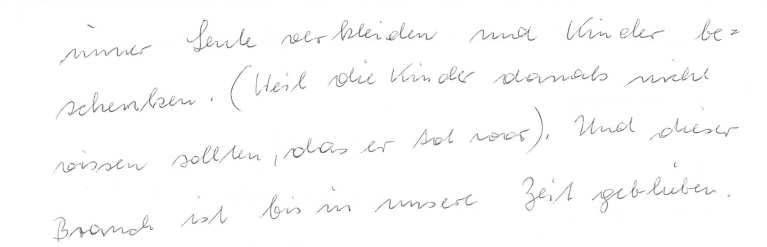 immer Leute verkleiden und Kinder be=
schenken. (Weil die Kinder damals nicht
wissen sollten, das er tot war). Und dieser
Brauch ist bis in unsere Zeit geblieben.